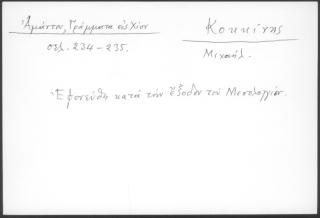 Ἀμάντου, Γράμματα εἰς Χίον
σελ. 234-235.
Κοκκίνης
Μιχαήλ.
Ἐφονεύθη κατὰ τὴν ἔξοδον τοῦ Μεσολογγίου.